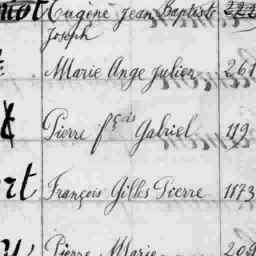 Eugène Jean Baptiste 222
Joseph
Marie Ange Julien 261
Pierre fçois Gabriel 119
rt François Gilles Pierre 1173
Pierre Marie 209